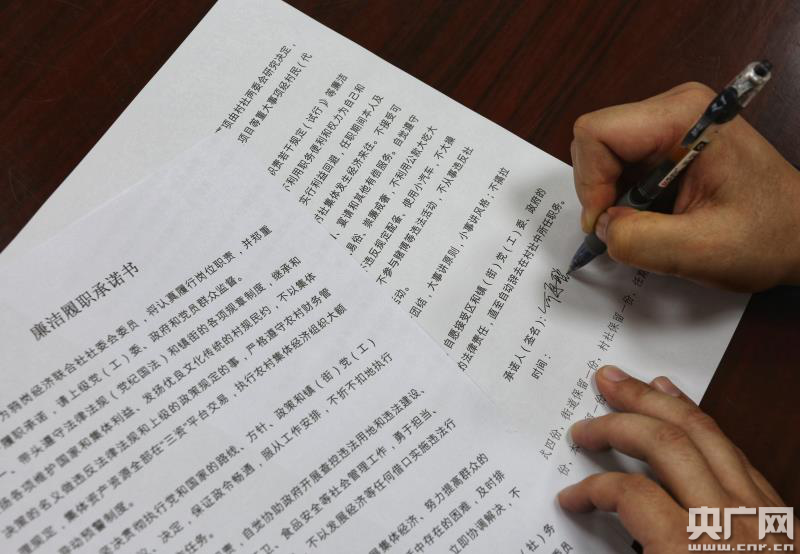 廉洁履职承诺书
为岗岗经济联合社社委会委员，将认真履行岗位职责，并郑重
履职承诺，请上级党（工）委、政府和党员群众监督。
、带头遵守法律法规（党纪国法）和镇街的各项规章制度，继承和
各项维护国家和集体利益、发扬优良文化传统的村规民约，不以集体
决策的名义做违反法律法规和上级的政策规定的事，严格遵守农村财务管
规定，集体资产资源全部在“三资”平台交易，执行农村集体经济组织大额
动预警制度。
坚决贯彻执行党和国家的路线、方针、政策和镇（街）党（工）
议、决定，保证政令畅通，服从工作安排，不折不扣地执行
任务。
，自觉协助政府开展查控违法用地和违法建设、
食品安全等社会管理工作，勇于担当、
不以发展经济等任何借口实施违法行
集体经济、努力提高群众的
中存在的困难，及时排
立即协调解决，不
社）务
项由村社两委会研究决定，
项目等重大事项经村民（代
职责若干规定（试行）》等廉洁
利用职务便利和权力为自己和
实行利益回避，任职期间本人及
村社集体发生经济来往。不接受可
、宴请和其他有偿服务。自觉遵守
易俗、崇廉戒奢，不利用公款大吃大
违反规定配备、使用小汽车，不大操
不参与赌博等违法活动，不从事违反社
活动。
团结，大事讲原则，小事讲风格；不搞拉
自愿接受区和镇（街）党（工）委、政府的
的法律责任，直至自动辞去在村社中所任职务。
承诺人（签名）：
时间：
式四份，街道保留一份，村社保留一份，任
份，本
央广网
www.cnr.cn